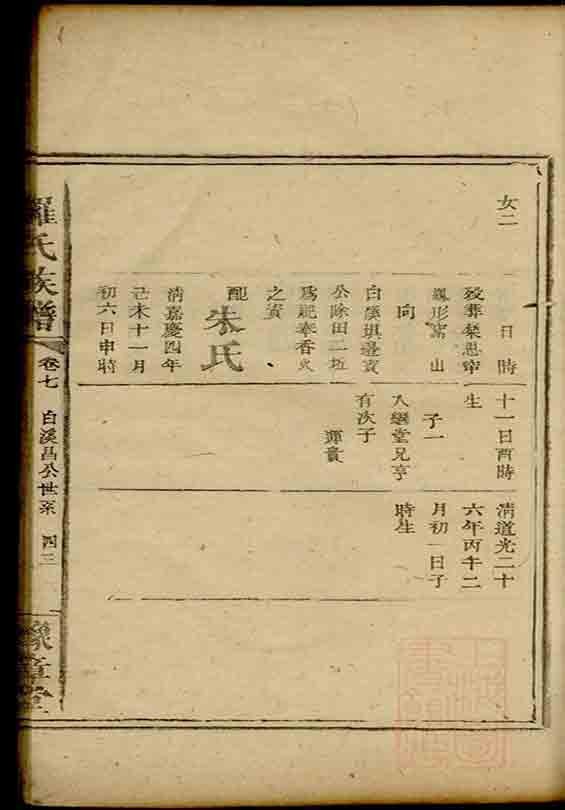 女二
日時
歿葬
形 山
向
白溪琪邊賣
公除田二坵
爲祀奉香火
之資
配朱氏
清嘉慶四年
己未十一月
初六日申時
十一日酉時
生
子一
入繼堂兄亨
有次子
運貴
清道光二十
六年丙午二
月初一日子
時生
羅氏族譜
卷七
白溪昌公世系
四三
豫章堂